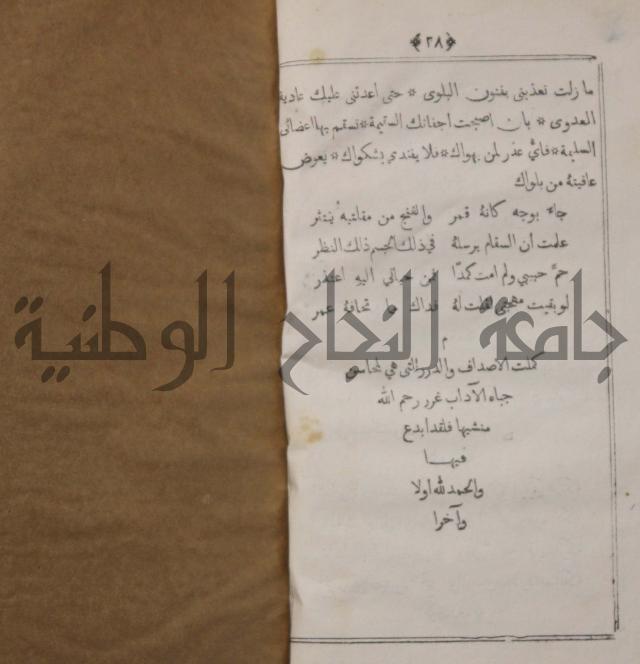 ﴿٢٨﴾
ما زلت تعذبني بفنون البلوى * حتى اعدتني عليك عادية
العدوى * بان اصبحت اجفانك السقيمة * تستمم بها اعضائى
السليمة * فاي عذر لمن يهواك * فلا يفتدي بشكواك * بعوض
عافيته من بلواك
جاء بوجه كانه قمر والغنج من مقلتيه ينتثر
علمت أن السقام برسله في ذلك الجسم ذلك النظر
حم حبيبي ولم امت كمدا من حياتي اليه اعتذر
لو بقيت مهجتي لقلت له فداك تخافه عمر
م
كملت الأصداف والغرر التى هي لمحاسن
جباه الآداب غرر رحم الله
منشيها فلقد ابدع
فيها
والحمد لله أولا
وآخرا
جامعة النجاح الوطنية